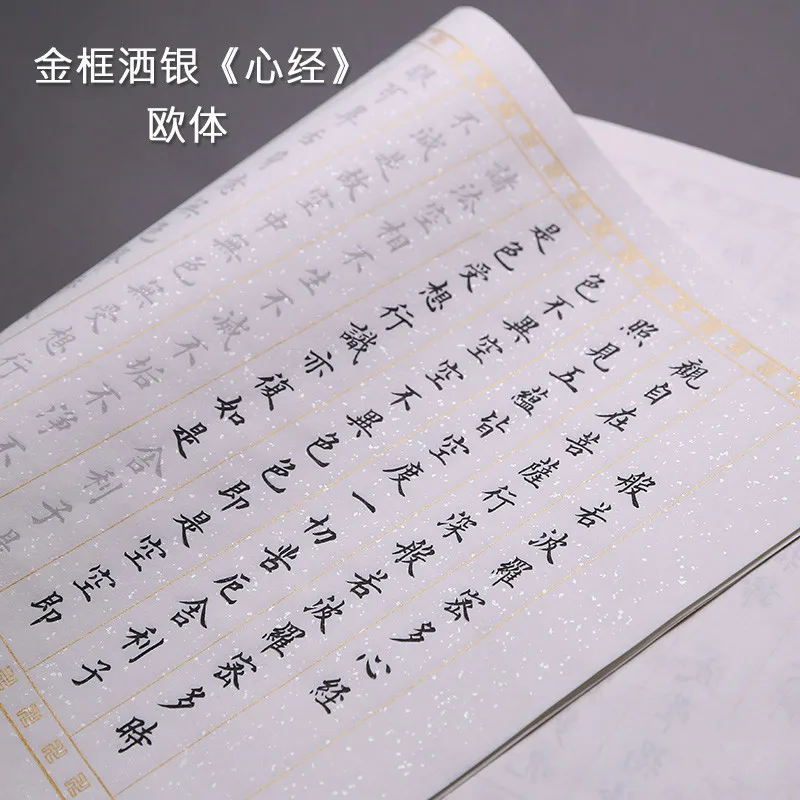 金框洒银《心经》
欧体
般若波羅密多心経
觀自在菩薩行深般若波羅密多時
照見五蘊皆空度一切苦厄舍利子
色不異空空不異色色即是空空即
是色受想行識亦復如是舍利子是
諸法空相不生不滅不垢不淨不
不減是故空中無色無受想行
眼耳鼻舌身意無色